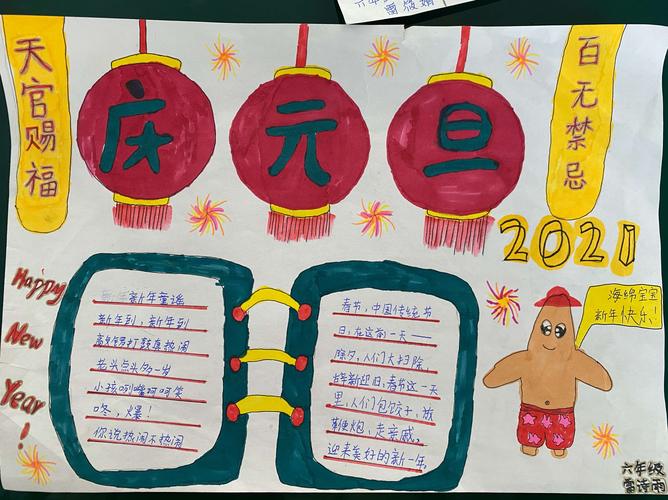 天官赐福
庆元旦
百无禁忌
2021
Happy
New
Year!
新年童谣
新年到,新年到
打鼓真热闹
老头点头多一岁
小孩咧嘴呵呵笑
咚,爆!
你说热闹不热闹
春节,中国传统节
日,在这前一天——
除夕,人们大扫除,
辞新迎旧,春节这一天
里,人们包饺子,放
鞭炮,走亲戚,
迎来美好的新一年。
海绵宝宝
新年快乐!
六年级
雷诗雨